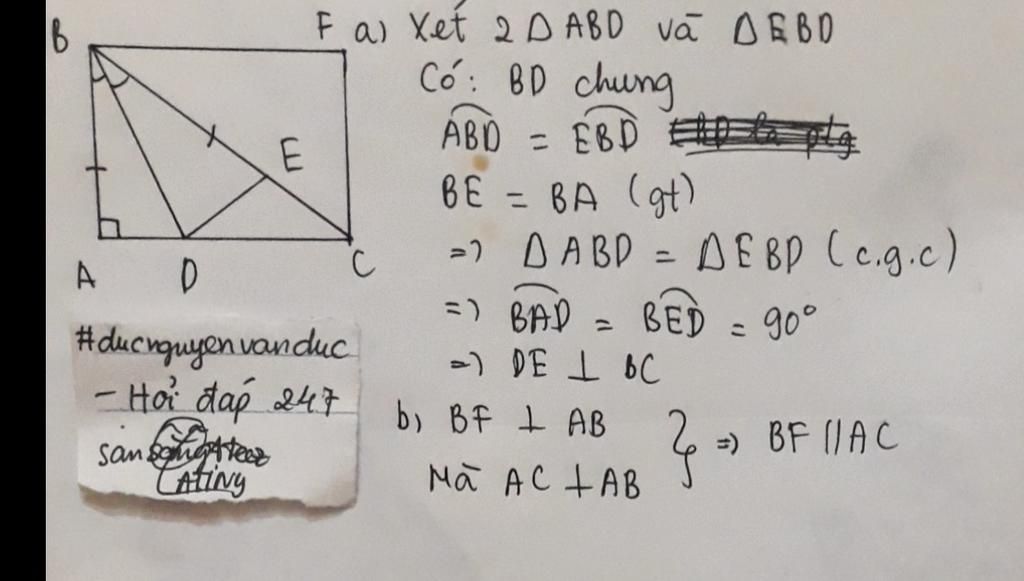 B
F
E
A
D
C
a) Xét 2 Δ ABD và Δ EBD
Có: BD chung
ABD = EBD
BE = BA (gt)
=> Δ ABD = Δ EBD (c.g.c)
=> BAD = BED = 90°
=> DE ⊥ BC
b) BF ⊥ AB
Mà AC ⊥ AB
} => BF // AC
#ducnguyenvanduc
- Hỏi đáp 247
sàn